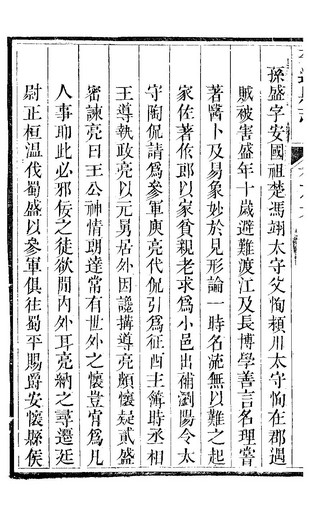 孫盛字安國祖楚馮翊太守父恂穎川太守恂在郡遇
賊被害盛年十歲避難渡江及長博學善言名理嘗
著醫卜及易象妙於見形論一時名流無以難之起
家佐著作郎以家貧親老求爲小邑出補瀏陽令太
守陶侃請爲參軍庾亮代侃引爲征西主簿時丞相
王導執政亮以元舅居外因讒搆導亮頗懷疑貳盛
密諫亮曰王公神情朗達常有世外之懷豈肯爲凡
人事耶此必邪佞之徒欲間內外耳亮納之尋遷廷
尉正桓温伐蜀盛以參軍俱往蜀平賜爵安懷縣侯